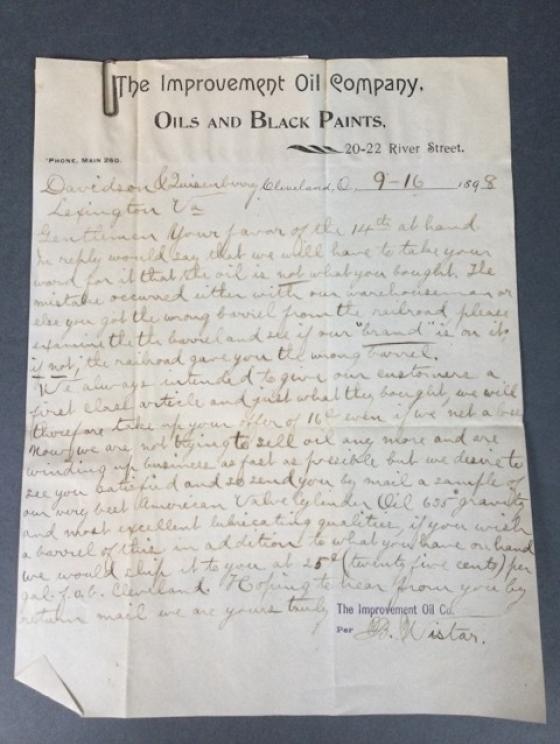 The Improvement Oil Company,
OILS AND BLACK PAINTS,
20-22 River Street.
'PHONE, MAIN 260.
Davidson & Quisenberry Cleveland, O., 9-16 1898
Lexington Va
Gentlemen Your favor of the 14th at hand
In reply would say that we will have to take your
word for it that the oil is not what you bought. The
mistake occurred either with our warehouseman or
else you got the wrong barrel from the railroad please
examine the the barrel and see if our "brand" is on it
if not, the railroad gave you the wrong barrel.
We always intended to give our customers a
first class article and just what they bought, we will
therefore take up your offer of 16¢ even if we net a loss
Now, we are not trying to sell oil any more and are
winding up business as fast as possible but we desire to
see you satisfied and so send you by mail a sample of
our very best American Valve Cylinder Oil 635° gravity
and most excellent lubricating qualities, if you wish
a barrel of this in addition to what you have on hand
we would ship it to you at 25¢ (twenty five cents) per
gal. f.o.b. Cleveland. Hoping to hear from you by
return mail we are yours truly The Improvement Oil Co.
Per B. Wistar.